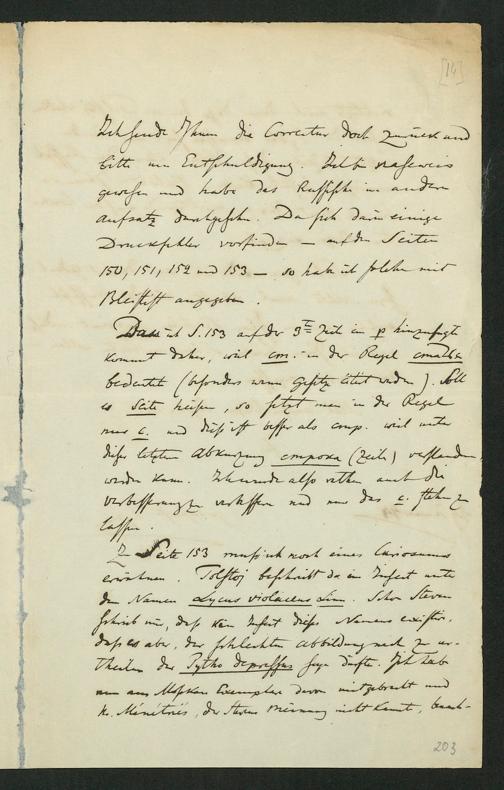 [14]
Ich sende Ihnen die Correctur doch zurück und
bitte um Entschuldigung. Ich bin naseweis
gewesen und habe das Russische im andern
Aufsatz durchgesehn. Da sich darin einige
Druckfehler vorfinden — auf den Seiten
150, 151, 152 und 153 — so hab ich solche mit
Bleistift angegeben.
Dass ich S. 153 auf der 3ten Zeile ein p hinzugefügt
kommt daher, weil cm. in der Regel статья
bedeutet (besonders wenn Gesetze citirt werden). Soll
es Seite heissen, so setzt man in der Regel
nur c. und diess ist besser als cmp. weil unter
dieser letzten Abkürzung строка (Zeile) verstanden
werden kann. Ich würde also rathen auch die
Verbesserung zu verbessern und nur das c. stehn zu
lassen.
Seite 153 muss ich noch eines Curiosums
erwähnen. Tolstoj beschreibt da ein Insect unter
dem Namen Lycus violaceus Linn. Schon Steven
schrieb mir, dass kein Insect dieses Namens existire,
dass es aber, der schlechten Abbildung nach zu ur-
theilen der Pytho depressus seyn dürfte. Ich hab
nun aus Moskau Exemplare davon mitgebracht und
H. Ménétriés, der Stevens Meinung nicht kannte,
203